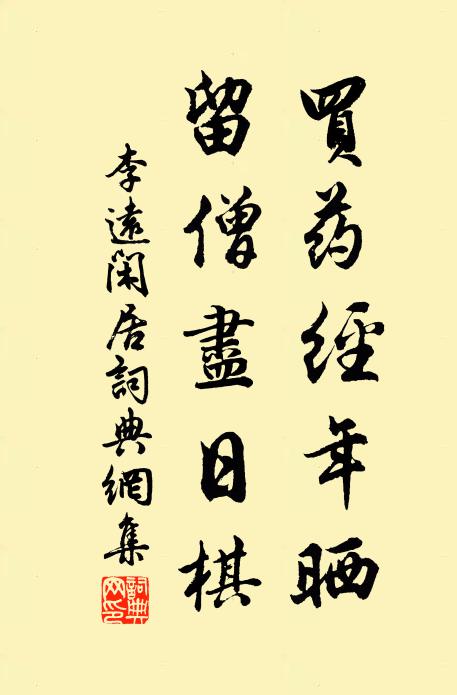 買药經年晒
留僧盡日棋
李遠閑居詞典網集
詞典網印